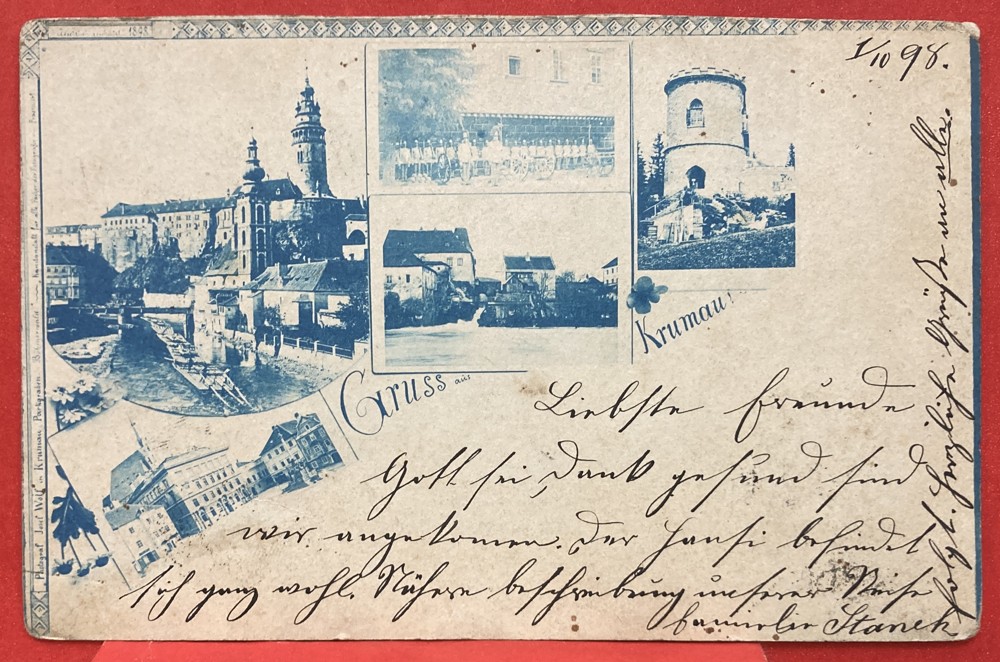 1/10 98.
Gruss aus
Krumau!
Liebste Freunde
Gott sei Dank gesund sind
wir angekomen. Der Hansi befindet
sich ganz wohl. Nähere beschreibung unserer Reise
folgt. Herzliche Grüße an alle.
Familie Stanek
Photograf Josef Wolf in Krumau, Parkgraben